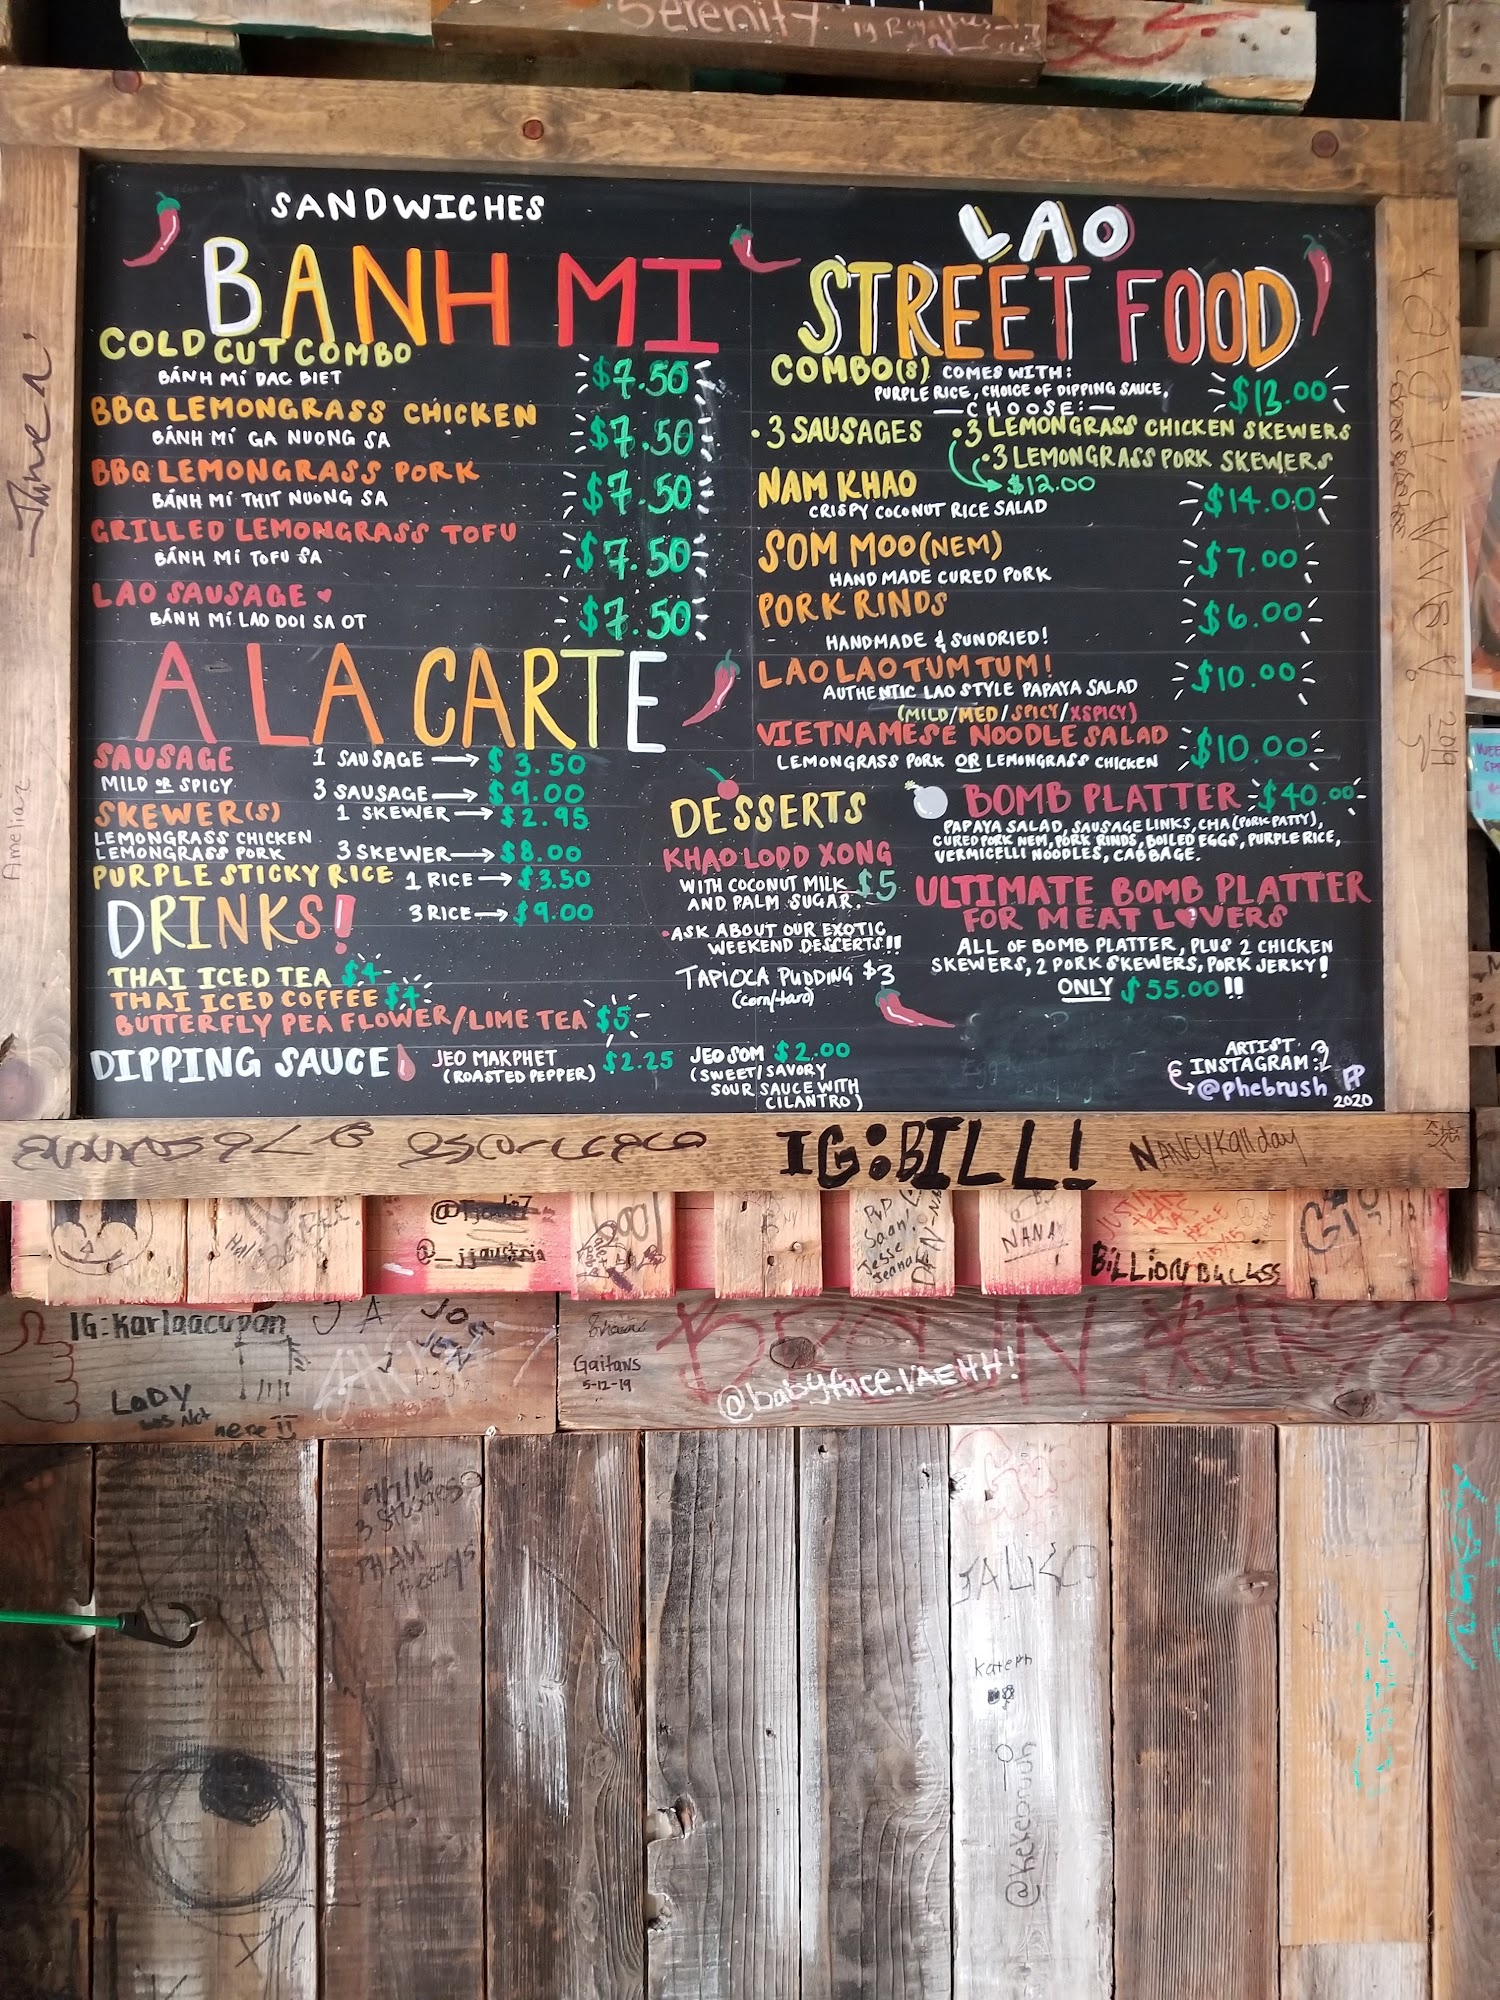 Serenity
SANDWICHES
BANH MI
COLD CUT COMBO
BÁNH MÍ DAC BIET
$7.50
BBQ LEMONGRASS CHICKEN
BÁNH MÍ GA NUONG SA
$7.50
BBQ LEMONGRASS PORK
BÁNH MÍ THIT NUONG SA
$7.50
GRILLED LEMONGRASS TOFU
BÁNH MÍ TOFU SA
$7.50
LAO SAUSAGE
BÁNH MÍ LAO DOI SA OT
$7.50
A LA CARTE
SAUSAGE 1 SAUSAGE → $3.50
MILD OR SPICY 3 SAUSAGE → $9.00
SKEWER(S) 1 SKEWER → $2.95
LEMONGRASS CHICKEN
LEMONGRASS PORK 3 SKEWER → $8.00
PURPLE STICKY RICE 1 RICE → $3.50
3 RICE → $9.00
DRINKS!
THAI ICED TEA $4
THAI ICED COFFEE $4
BUTTERFLY PEA FLOWER/LIME TEA $5
DIPPING SAUCE
JEO MAKPHET $2.25
(ROASTED PEPPER)
JEO SOM $2.00
(SWEET/SAVORY
SOUR SAUCE WITH
CILANTRO)
DESSERTS
KHAO LODD XONG
WITH COCONUT MILK $5
AND PALM SUGAR.
•ASK ABOUT OUR EXOTIC
WEEKEND DESSERTS!!
TAPIOCA PUDDING $3
(corn/taro)
LAO
STREET FOOD
COMBO(S) COMES WITH:
PURPLE RICE, CHOICE OF DIPPING SAUCE.
$13.00
—CHOOSE:—
•3 SAUSAGES •3 LEMONGRASS CHICKEN SKEWERS
•3 LEMONGRASS PORK SKEWERS
$12.00
NAM KHAO
CRISPY COCONUT RICE SALAD
$14.00
SOM MOO (NEM)
HAND MADE CURED PORK
$7.00
PORK RINDS
HANDMADE & SUNDRIED!
$6.00
LAO LAO TUM TUM!
AUTHENTIC LAO STYLE PAPAYA SALAD
$10.00
(MILD/MED/SPICY/XSPICY)
VIETNAMESE NOODLE SALAD
LEMONGRASS PORK OR LEMONGRASS CHICKEN
$10.00
BOMB PLATTER $40.00
PAPAYA SALAD, SAUSAGE LINKS, CHA (PORK PATTY),
CURED PORK NEM, PORK RINDS, BOILED EGGS, PURPLE RICE,
VERMICELLI NOODLES, CABBAGE.
ULTIMATE BOMB PLATTER
FOR MEAT LOVERS
ALL OF BOMB PLATTER, PLUS 2 CHICKEN
SKEWERS, 2 PORK SKEWERS, PORK JERKY!
ONLY $55.00!!
ARTIST
INSTAGRAM:
@phebrush
2020
IG:BILL!
NANCYKallday
NANA
IG:karlaacupan
JEN
LADY
was Not
here
Gaitans
5-12-19
@babyface.VAEHH!
3 STOOGES
PHAM